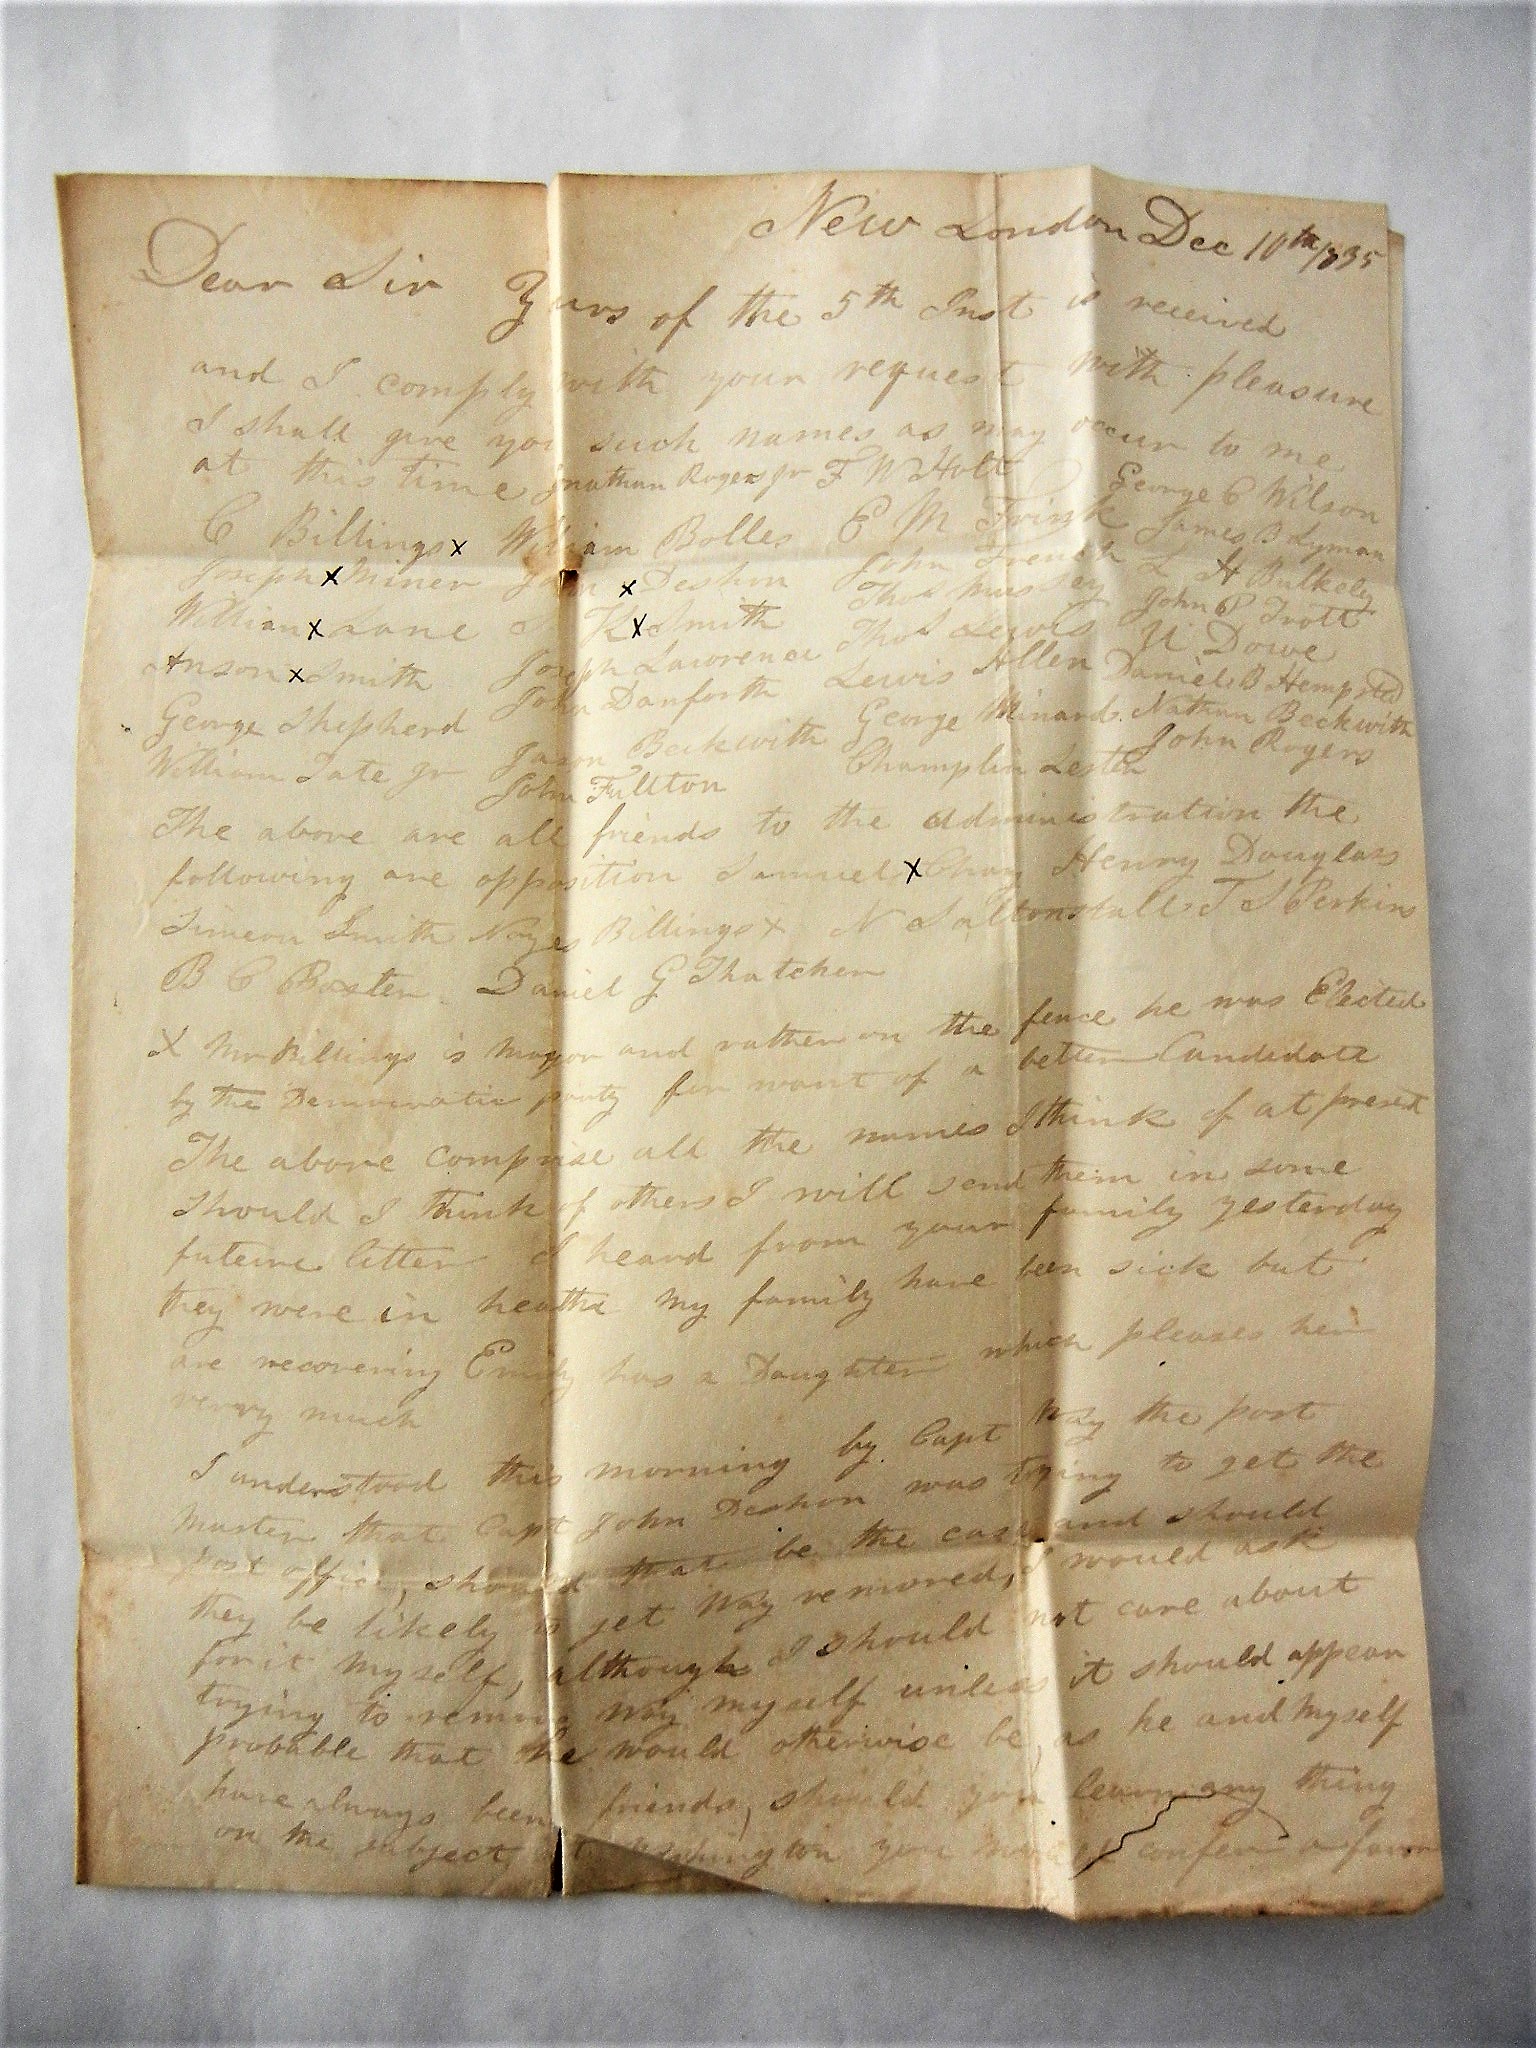 New London Dec 10th 1835
Dear Sir Yurs of the 5th Inst is received
and I comply with your request with pleasure
I shall give you such names as may occur to me
at this time Jonathan Rogers jr F W Holt George C Wilson
C Billings x William Bolles E M Frink James B Lyman
Joseph x Miner John x Deshon John French L H Bulkely
William x Lane K x Smith Thos Mussey John P Trott
Anson x Smith Joseph Lawrence Thos Lewis U Dowe
George Shepherd John Danforth Lewis Allen Daniel B Hempsted
William Tate jr Jason Beckwith George Minard. Nathan Beckwith
John Fullton Champlin Lester John Rogers
The above are all friends to the administration the
following are opposition Samuel x Chany Henry Douglass
Simeon Smith Noyes Billings x N Saltonstall T S Perkins
B C Baxter. Daniel G Thatcher
X Mr Billings is mayor and rather on the fence he was Elected
by the Democratic party for want of a better Candidate
The above comprise all the names I think of at present
Should I think of others I will send them in some
future letter I heard from your family yesterday
they were in health my family have been sick but
are recovering Emily has a Daughter which pleases her
verry much
I understood this morning by Capt Way the post
Master that Capt John Deshon was trying to get the
post office, should that be the case and should
they be likely to get Way removed, I would ask
for it myself, although I should not care about
trying to remove Way myself unless it should appear
probable that he would otherwise be, as he and myself
have always been friends, should you learn any thing
on the subject at Washington you confer a favor